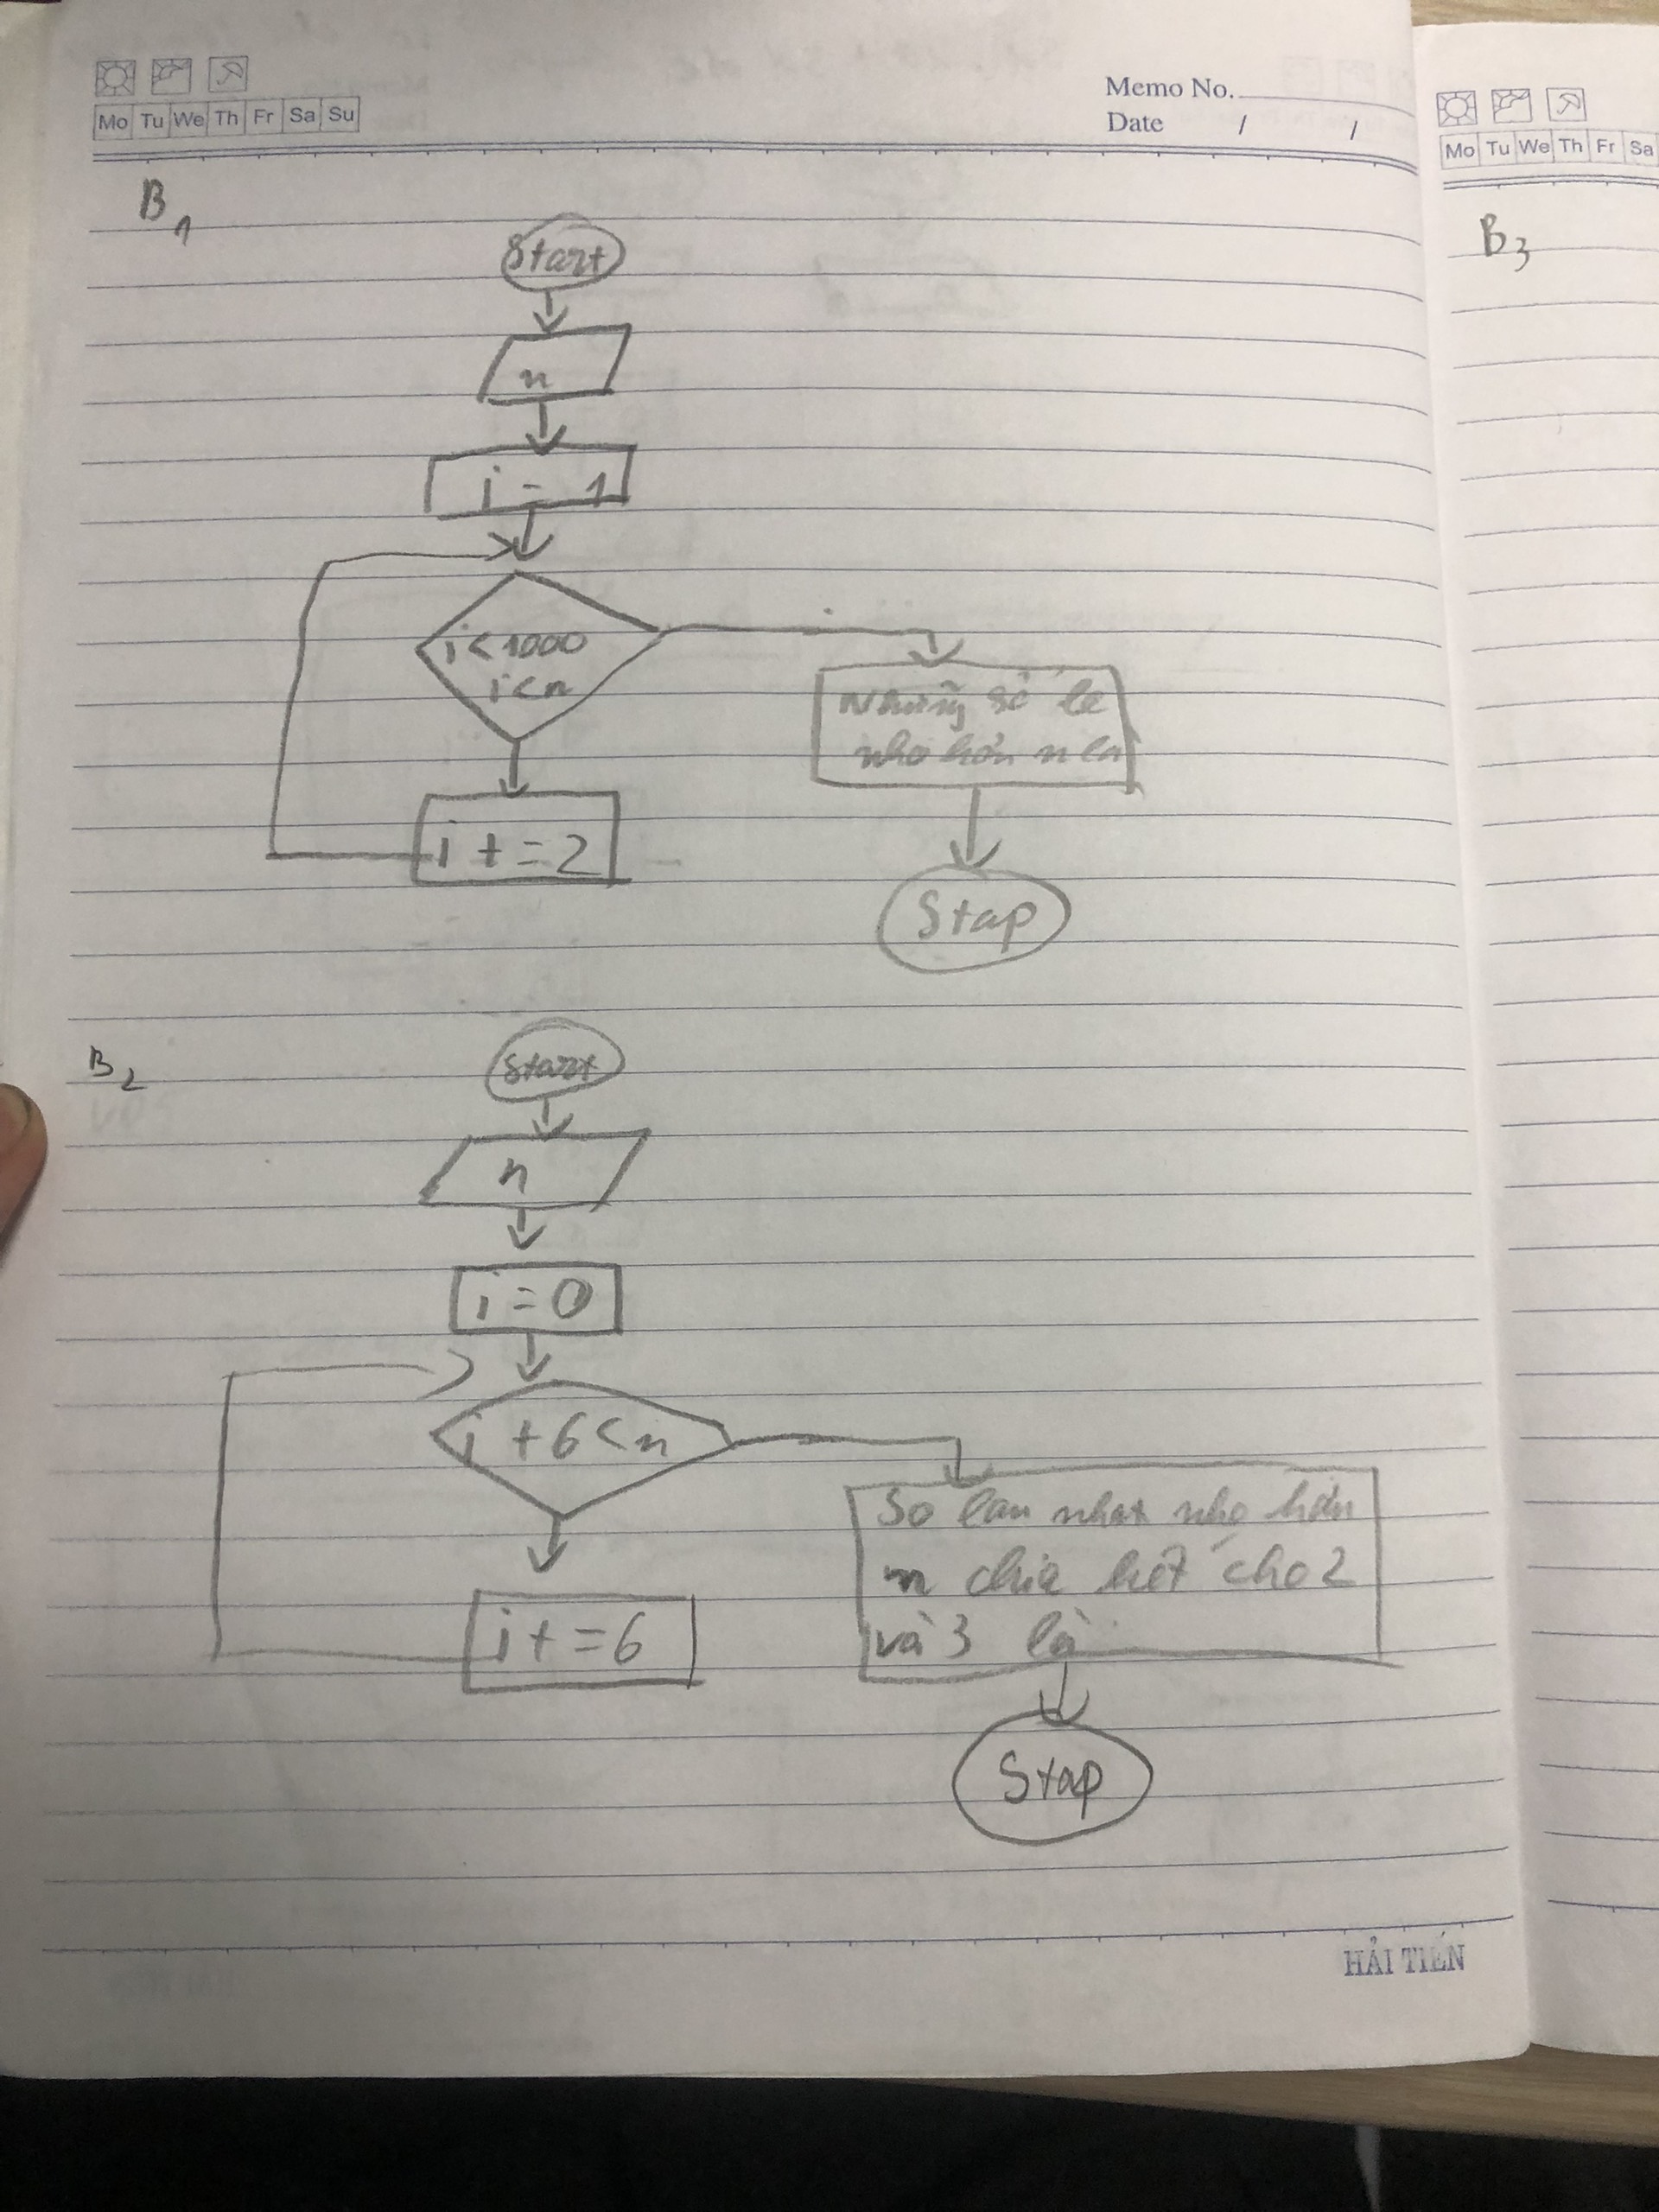 Mo Tu We Th Fr Sa Su
Memo No.
Date / /
B1
Start
n
i = 1
i < 1000
i < n
Những số lẻ
nhỏ hơn n la
i += 2
Stap
B2
Start
n
i = 0
i + 6 < n
So lan nhat nhỏ hơn
n chia hết cho 2
và 3 là
i += 6
Stap
HẢI TIẾN
Mo Tu We Th Fr Sa
B3